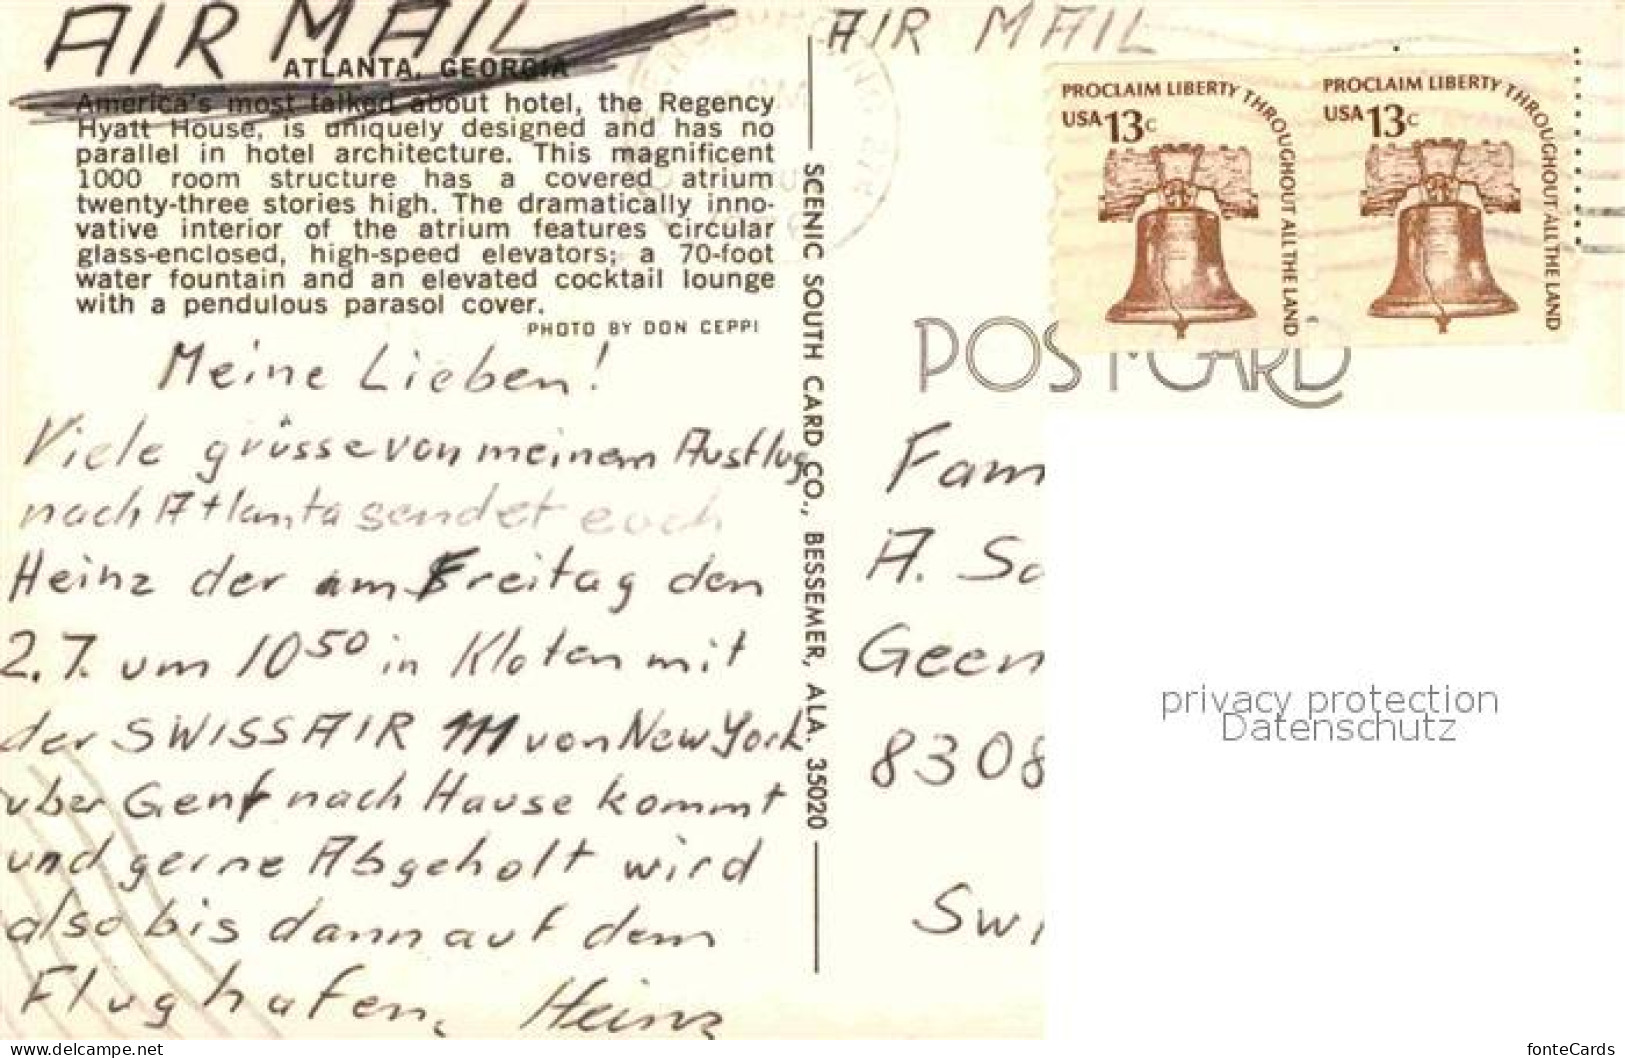 AIR MAIL
ATLANTA, GEORGIA
America's most talked about hotel, the Regency
Hyatt House, is uniquely designed and has no
parallel in hotel architecture. This magnificent
1000 room structure has a covered atrium
twenty-three stories high. The dramatically inno-
vative interior of the atrium features circular
glass-enclosed, high-speed elevators; a 70-foot
water fountain and an elevated cocktail lounge
with a pendulous parasol cover.
PHOTO BY DON CEPPI
Meine Lieben!
Viele grüsse von meinem Ausflug
nach Atlanta sendet euch
Heinz der am Freitag den
2.7. um 10⁵⁰ in Kloten mit
der SWISSAIR 111 von New York
über Genf nach Hause kommt
und gerne Abgeholt wird
also bis dann auf dem
Flughafen.
Heinz
SCENIC SOUTH CARD CO., BESSEMER, ALA. 35020
AIR MAIL
PROCLAIM LIBERTY THROUGHOUT ALL THE LAND
USA 13c
PROCLAIM LIBERTY THROUGHOUT ALL THE LAND
USA 13c
POSTCARD
Fam
A. Sc
Geen
8308
Swi
privacy protection
Datenschutz
www.delcampe.net
fonteCards